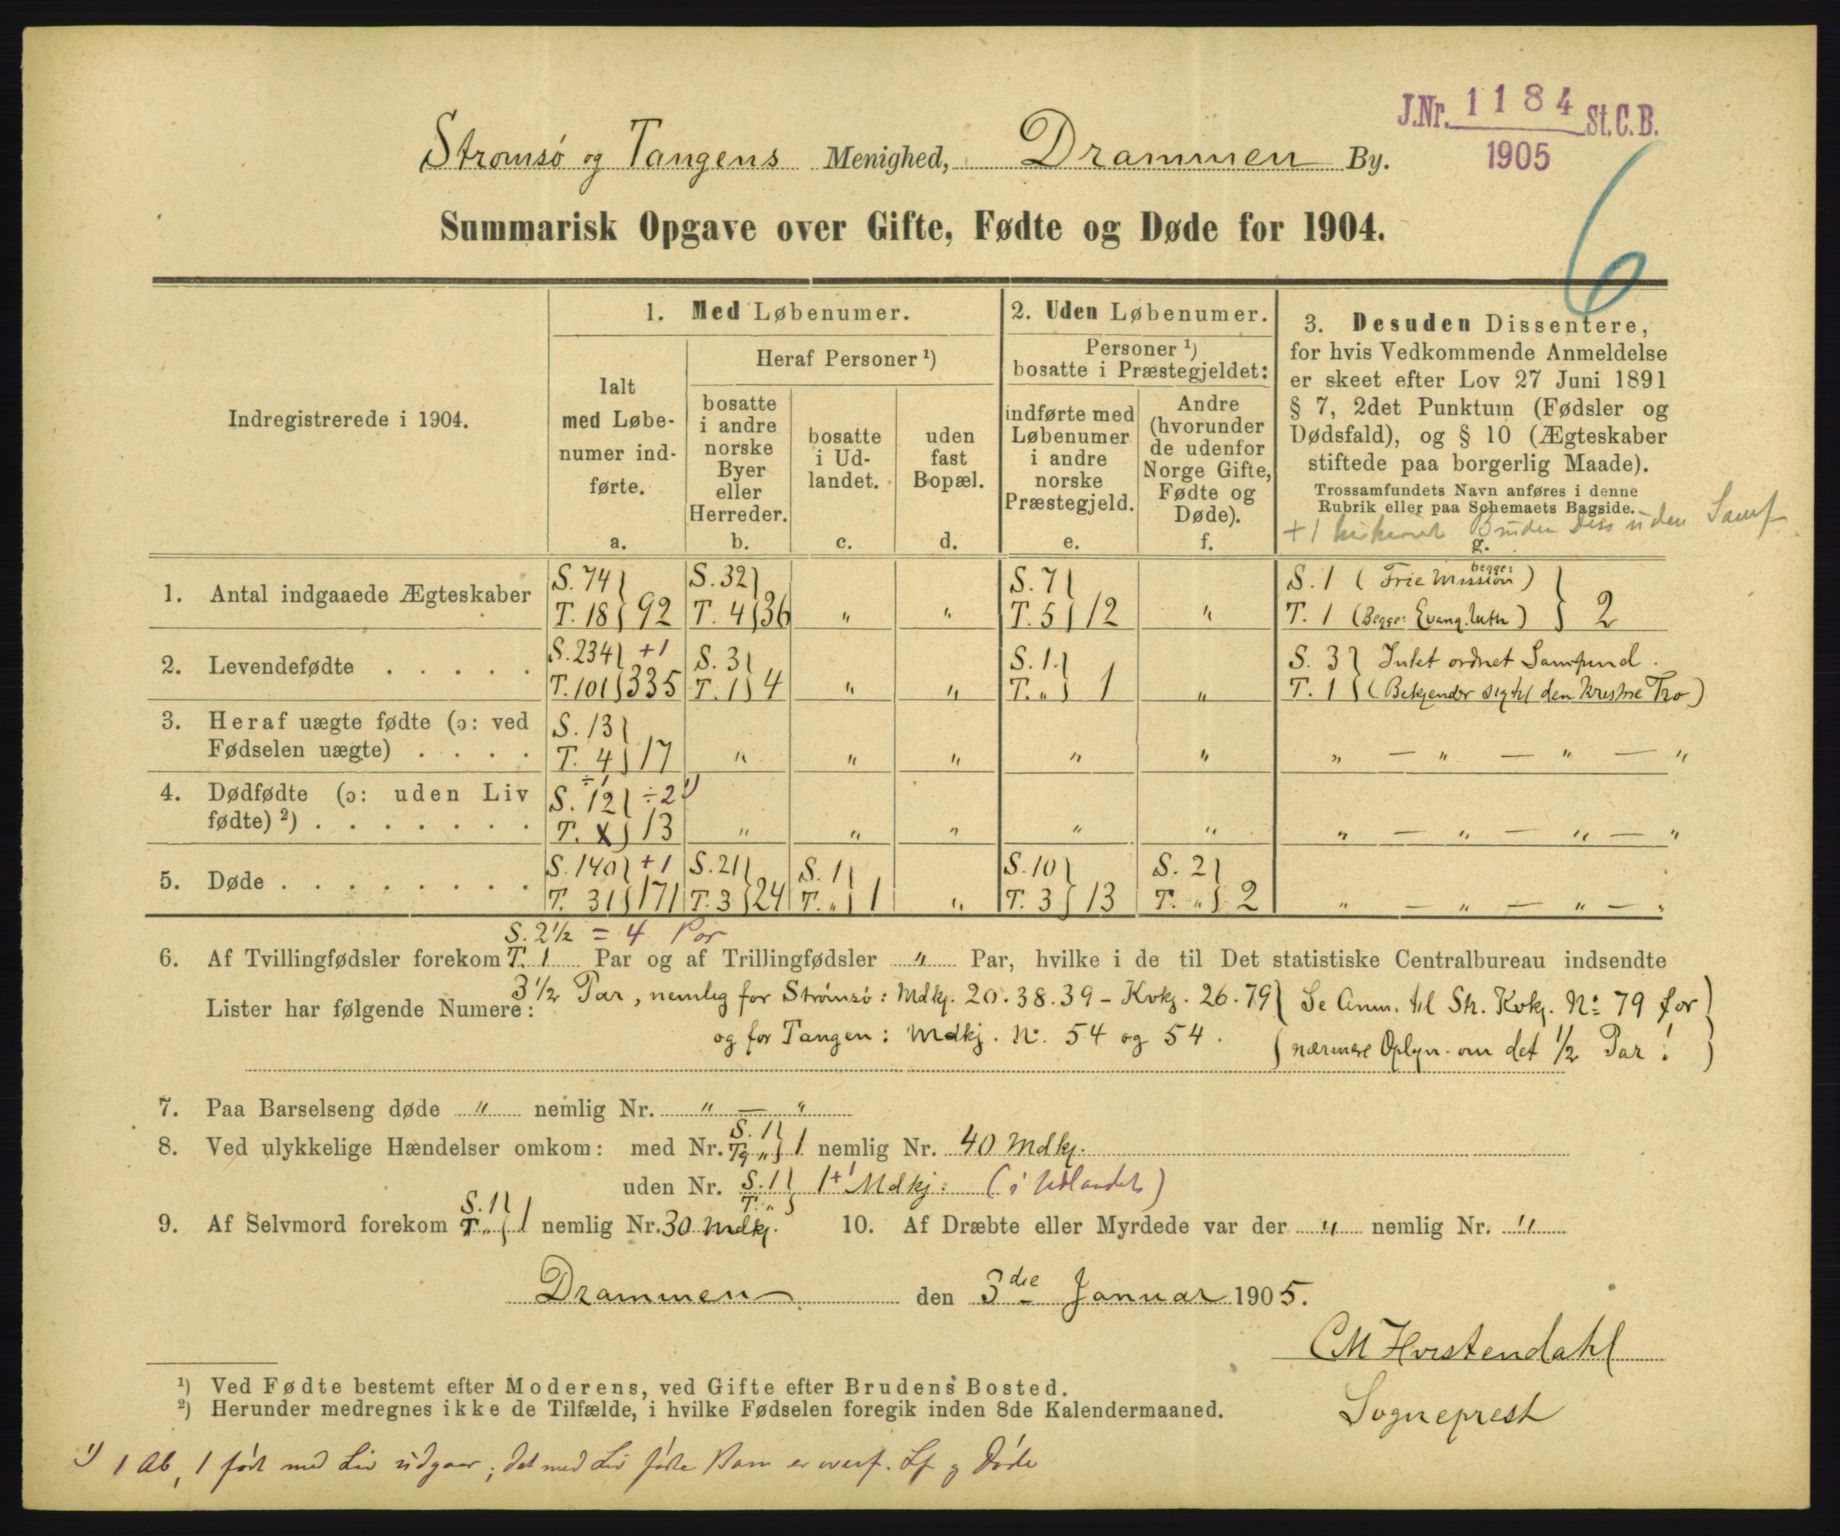 J.Nr. 1184 St.C.B.
1905
6
Strømsø og Tangens Menighed, Drammen By.
Summarisk Opgave over Gifte, Fødte og Døde for 1904.
Indregistrerede i 1904.
1. Med Løbenumer.
Ialt med Løbe-
numer ind-
førte.
a.
Heraf Personer ¹)
bosatte
i andre
norske
Byer
eller
Herreder.
b.
bosatte
i Ud-
landet.
c.
uden
fast
Bopæl.
d.
2. Uden Løbenumer.
Personer ¹)
bosatte i Præstegjeldet:
indførte med
Løbenumer
i andre
norske
Præstegjeld.
e.
Andre
(hvorunder
de udenfor
Norge Gifte,
Fødte og
Døde).
f.
3. Desuden Dissentere,
for hvis Vedkommende Anmeldelse
er skeet efter Lov 27 Juni 1891
§ 7, 2det Punktum (Fødsler og
Dødsfald), og § 10 (Ægteskaber
stiftede paa borgerlig Maade).
Trossamfundets Navn anføres i denne
Rubrik eller paa Schemaets Bagside.
+ 1 Bruden Diss uden Samf
g.
1. Antal indgaaede Ægteskaber
S. 74 } S. 32 } S. 7 } S. 1 (Frie Mission begge) }
T. 18 } 92 T. 4 } 36 " " T. 5 } 12 " T. 1 (Begge: Evang. luth) } 2
2. Levendefødte . . . . .
S. 234 } +1 S. 3 } S. 1. } S. 3 } Intet ordnet Samfund.
T. 101 } 335 T. 1 } 4 " " T. " } 1 " T. 1 } (Bekjender sig til den kristne Tro)
3. Heraf uægte fødte (ɔ: ved
Fødselen uægte) . . . .
S. 13 }
T. 4 } 17 " " " " " " — " — " — "
4. Dødfødte (ɔ: uden Liv
fødte) ²) . . . . . . .
÷1
S. 12 } ÷2 ¹)
T. 1 } 13 " " " " " " — " — " — "
5. Døde . . . . . . . .
S. 140 } +1 S. 21 } S. 1 } S. 10 } S. 2 }
T. 31 } 171 T. 3 } 24 T. " } 1 " T. 3 } 13 T. " } 2 " — " — " — "
S. 2 ½ = 4 Par
6. Af Tvillingfødsler forekom T. 1 Par og af Trillingfødsler " Par, hvilke i de til Det statistiske Centralbureau indsendte
Lister har følgende Numere: 3 ½ Par, nemlig for Strømsø: Mdkj. 20. 38. 39 – Kvkj. 26. 79 { Se Anm. til Sts. Kvkj. No 79 for }
og for Tangen: Mdkj. No. 54 og 54. { nærmere Oplysn. om det ½ Par! }
7. Paa Barselseng døde " nemlig Nr. " — "
8. Ved ulykkelige Hændelser omkom: med Nr. S. 1 } T. " } 1 nemlig Nr. 40 Mdkj.
uden Nr. S. 1 } T. " } 1 +1 Mdkj: (i Udlandet)
9. Af Selvmord forekom S. 1 } T. " } 1 nemlig Nr. 30 Mdkj. 10. Af Dræbte eller Myrdede var der " nemlig Nr. "
Drammen den 3die Januar 1905.
CM Horstendahl
Sogneprest
¹) Ved Fødte bestemt efter Moderens, ved Gifte efter Brudens Bosted.
²) Herunder medregnes ikke de Tilfælde, i hvilke Fødselen foregik inden 8de Kalendermaaned.
¹) 1 Ab, 1 født med Liv udgaar; det med Liv fødte Barn er overf. Lf og Døde